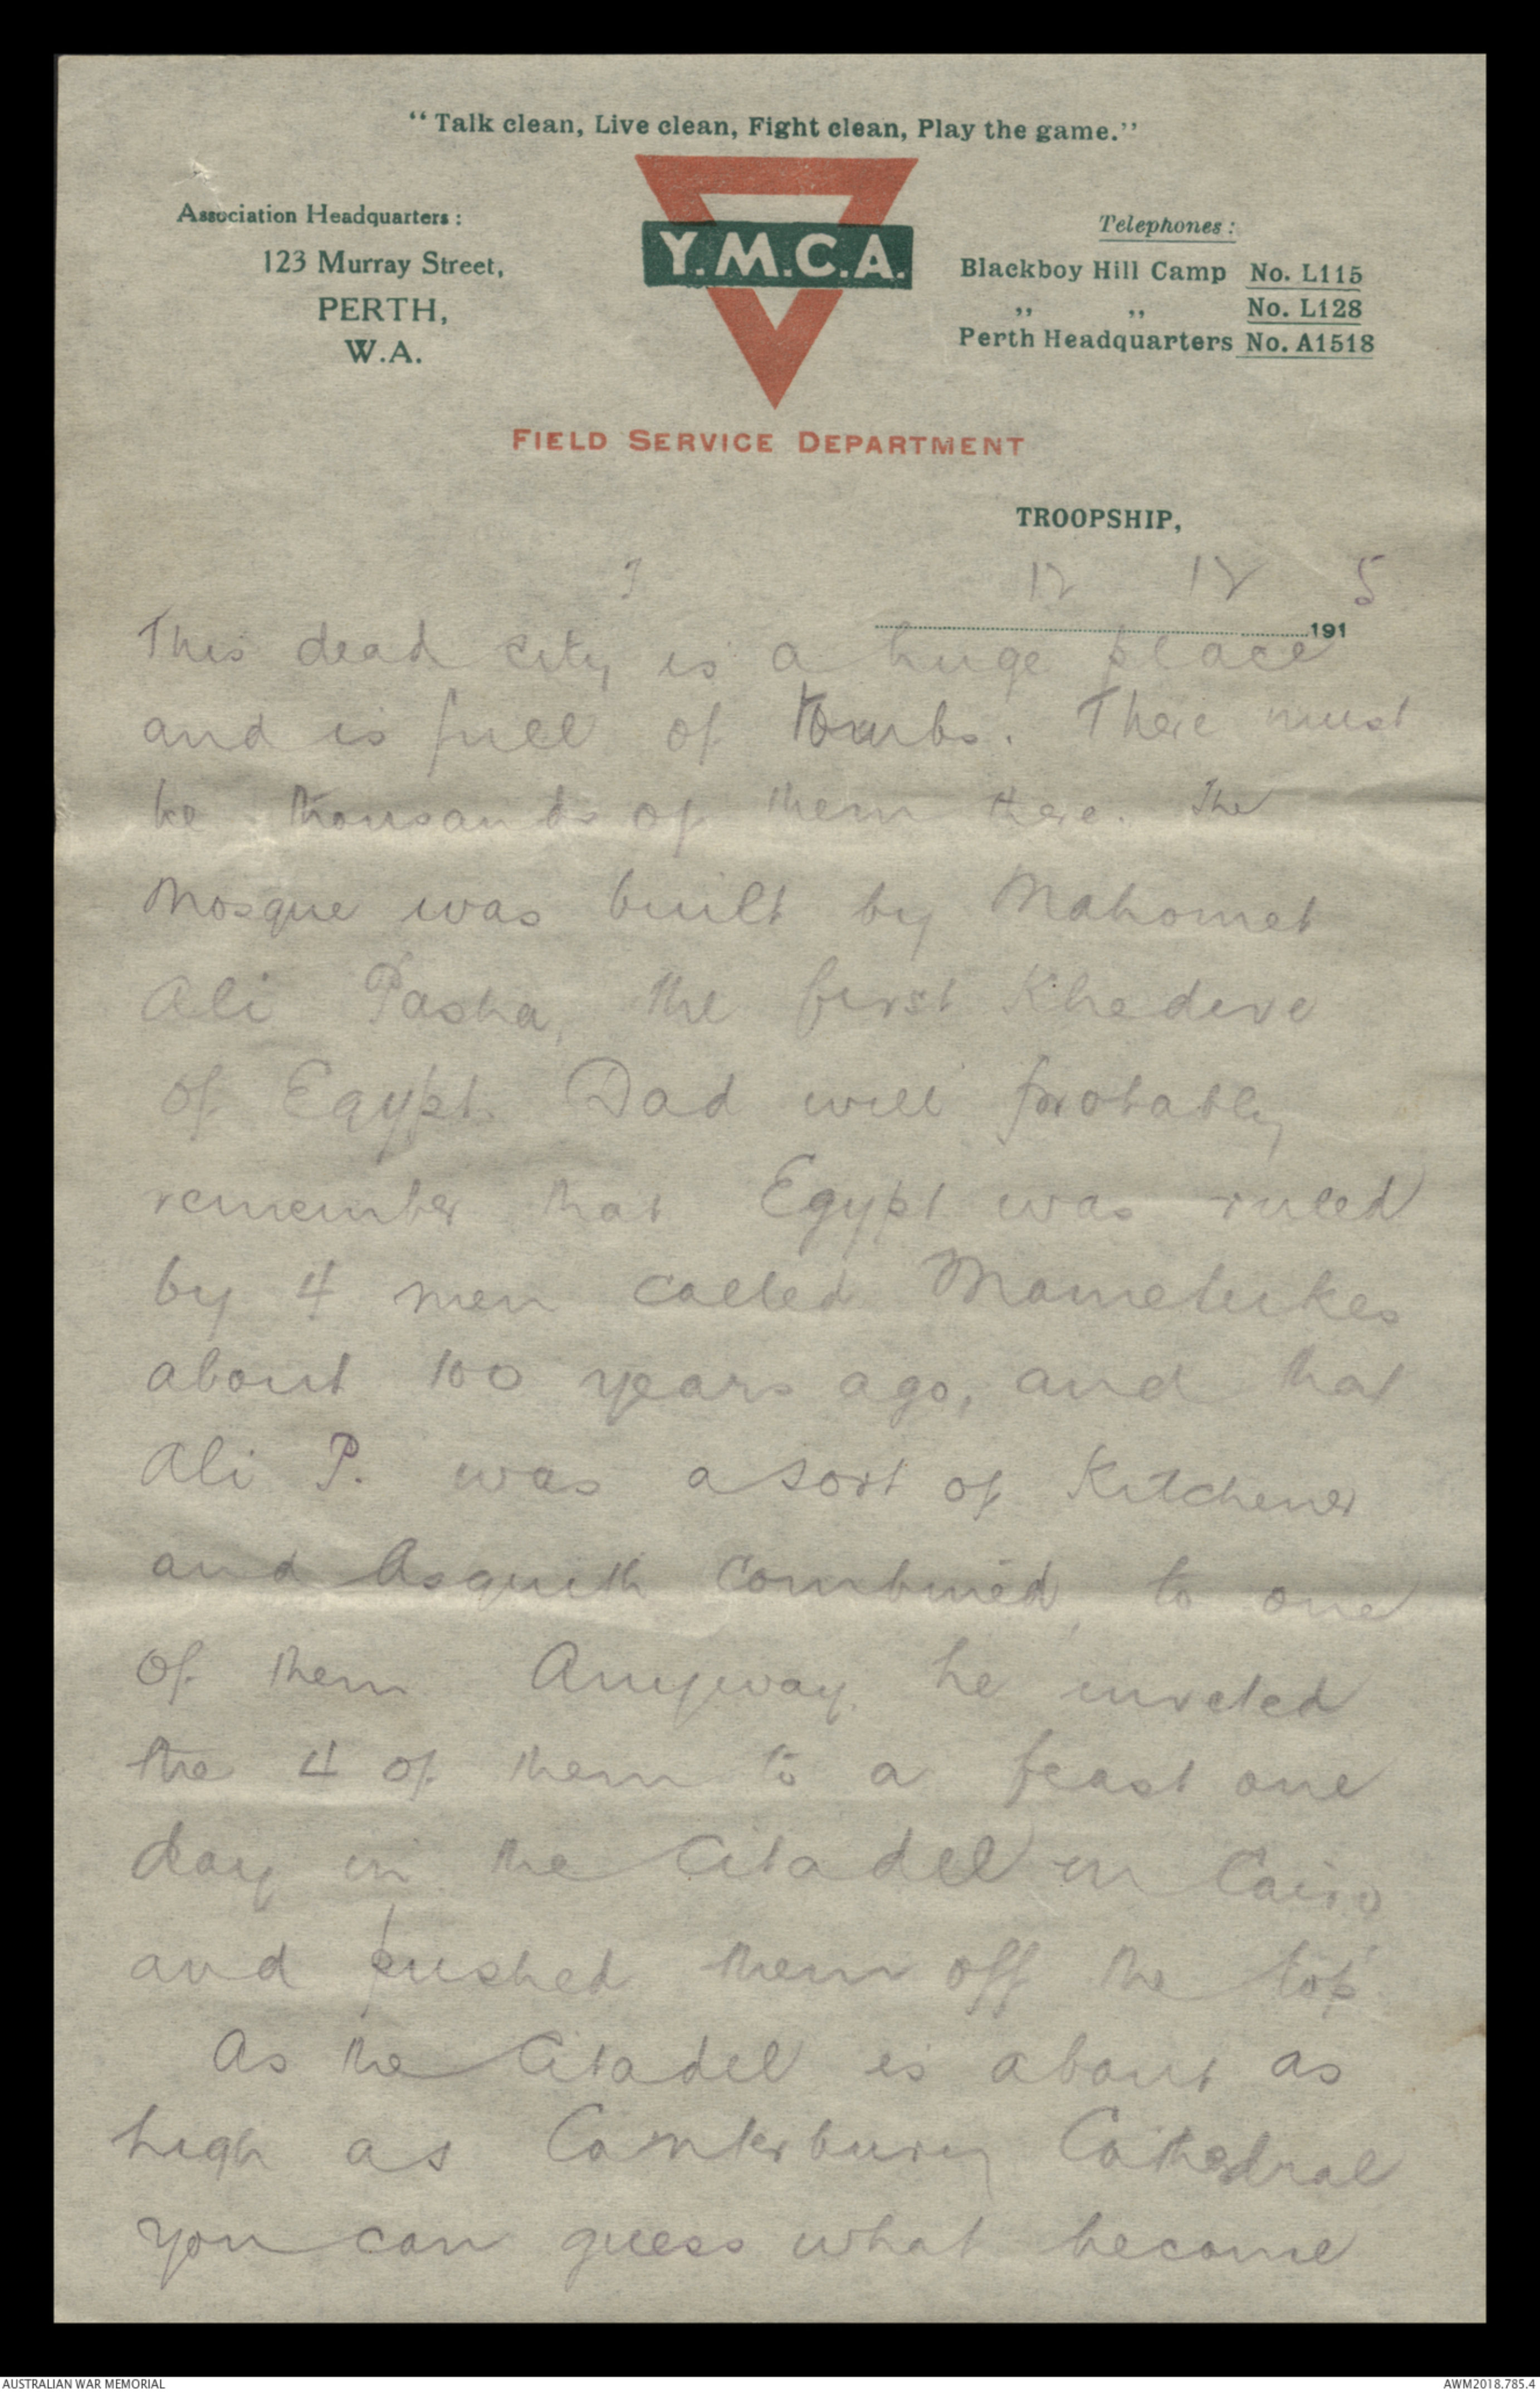 "Talk clean, Live clean, Fight clean, Play the game."
Association Headquarters:
123 Murray Street,
PERTH,
W.A.
Y.M.C.A.
Telephones:
Blackboy Hill Camp No. L115
" " No. L128
Perth Headquarters No. A1518
FIELD SERVICE DEPARTMENT
TROOPSHIP,
12 12 1915
This dead city is a huge place
and is full of Tombs. There must
be thousands of them there. The
Mosque was built by Mahomet
Ali Pasha, the first Khedive
of Egypt. Dad will probably
remember that Egypt was ruled
by 4 men called Mamelukes
about 100 years ago, and that
Ali P. was a sort of Kitchener
and Asquith combined, to one
of them Anyway he invited
the 4 of them to a feast one
day in the Citadel in Cairo
and pushed them off the top.
As the Citadel is about as
high as Canterbury Cathedral
you can guess what become
AUSTRALIAN WAR MEMORIAL
AWM2018.785.4